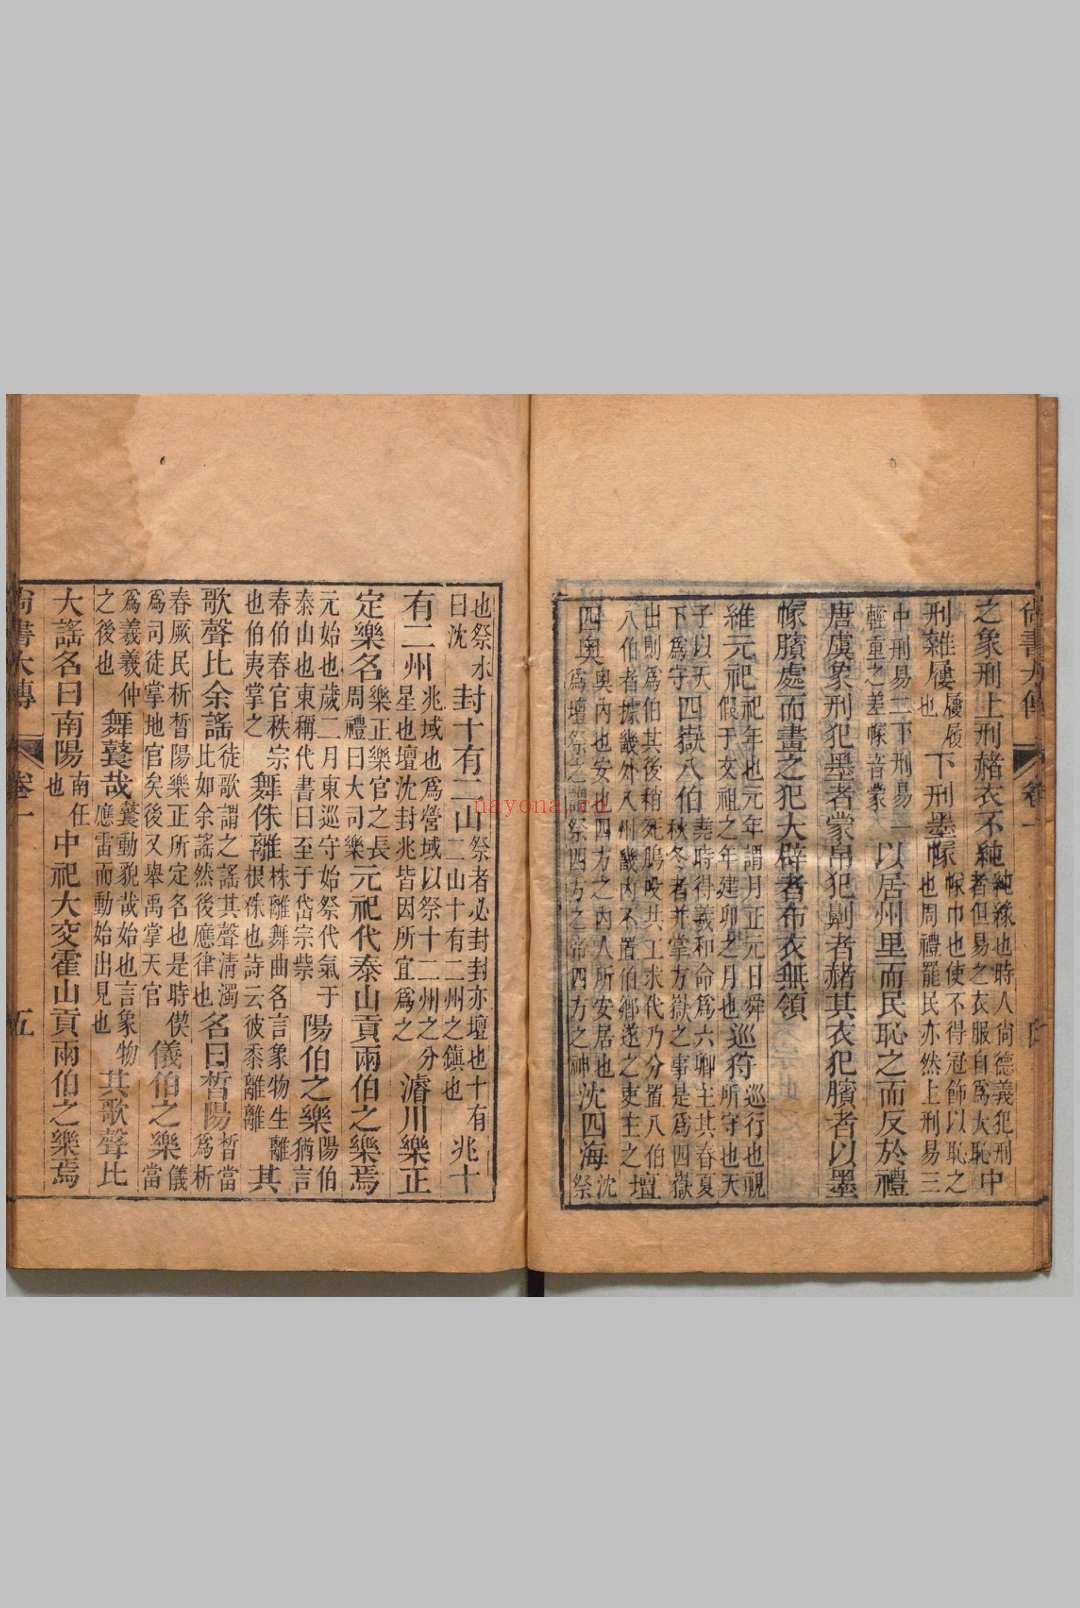 尚書大傳 卷一
之象刑上刑赭衣不純純緣也時人尙德義犯刑者但易之衣服自爲大恥中
刑雜屨屨履也下刑墨幪幪巾也使不得冠飾以恥之也周禮罷民亦然上刑易三
中刑易二下刑易一輕重之差幪音蒙以居州里而民恥之而反於禮
唐虞象刑犯墨者蒙帛犯劓者赭其衣犯臏者以墨
幪臏處而畫之犯大辟者布衣無領
維元祀祀年也元年謂月正元日舜假于文祖之年建卯之月也巡狩巡行也視所守也天
子以天下爲守四嶽八伯堯時得羲和命爲六卿主其春夏秋冬者并掌方嶽之事是爲四嶽
出則爲伯其後稍死鵬吺共工求代乃分置八伯八伯者據畿外八州畿內不置伯鄉遂之吏主之壇
四奧奧內也安也四方之內人所安居也爲壇祭之謂祭四方之帝四方之神沈四海沈祭
也祭水曰沈封十有二山祭者必封封亦壇也十有二山十有二州之鎮也兆十
有二州兆域也爲營域以祭十二州之分星也壇沈封兆皆因所宜爲之濬川樂正
定樂名樂正樂官之長周禮曰大司樂元祀代泰山貢兩伯之樂焉
元始也歲二月東巡守始祭代氣于泰山也東稱代書曰至于岱宗柴陽伯之樂陽伯猶言
春伯春官秩宗也伯夷掌之舞侏離侏離舞曲名言象物生離根侏也詩云彼黍離離其
歌聲比余謠徒歌謂之謠其聲清濁比如余謠然後應律也名曰晳陽晳當爲析
春厥民析晳陽樂正所定名也是時僕爲司徒掌地官矣後又舉禹掌天官儀伯之樂儀當
爲羲羲仲之後也舞鼚哉鼚動貌哉始也言象物應雷而動始出見也其歌聲比
大謠名曰南陽南任也中祀大交霍山貢兩伯之樂焉
尚書大傳 卷一 五
nayona.cn